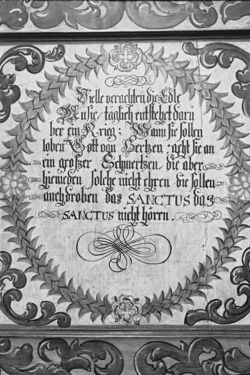 Vielle verachten die Edle
Music / täglich entstehet darü
ber ein Krieg: Wann sie sollen
loben Gott von Hertzen / geht sie an
ein großer Schmertzen. die aber
hienieden solche nicht ehren die sollen
auch droben das SANCTUS das
SANCTUS nicht hören.